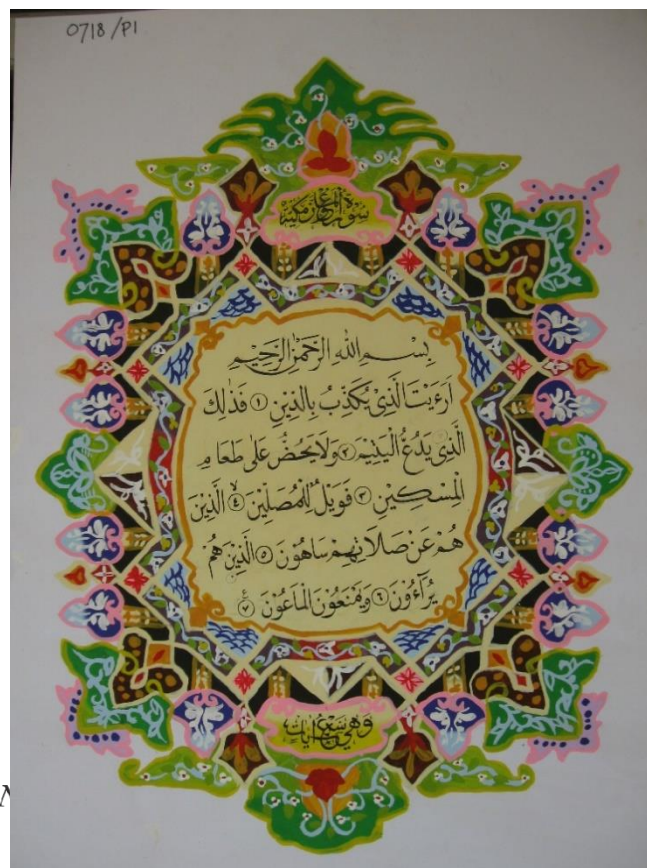 0718/P1
سورة الماعون مكية
بِسْمِ اللهِ الرَّحْمٰنِ الرَّحِيْمِ
اَرَءَيْتَ الَّذِيْ يُكَذِّبُ بِالدِّيْنِ ١ فَذٰلِكَ
الَّذِيْ يَدُعُّ الْيَتِيْمَ ٢ وَلَا يَحُضُّ عَلٰى طَعَامِ
الْمِسْكِيْنِ ٣ فَوَيْلٌ لِّلْمُصَلِّيْنَ ٤ الَّذِيْنَ
هُمْ عَنْ صَلَاتِهِمْ سَاهُوْنَ ٥ الَّذِيْنَ هُمْ
يُرَآءُوْنَ ٦ وَيَمْنَعُوْنَ الْمَاعُوْنَ ٧
وهي سبع ايات